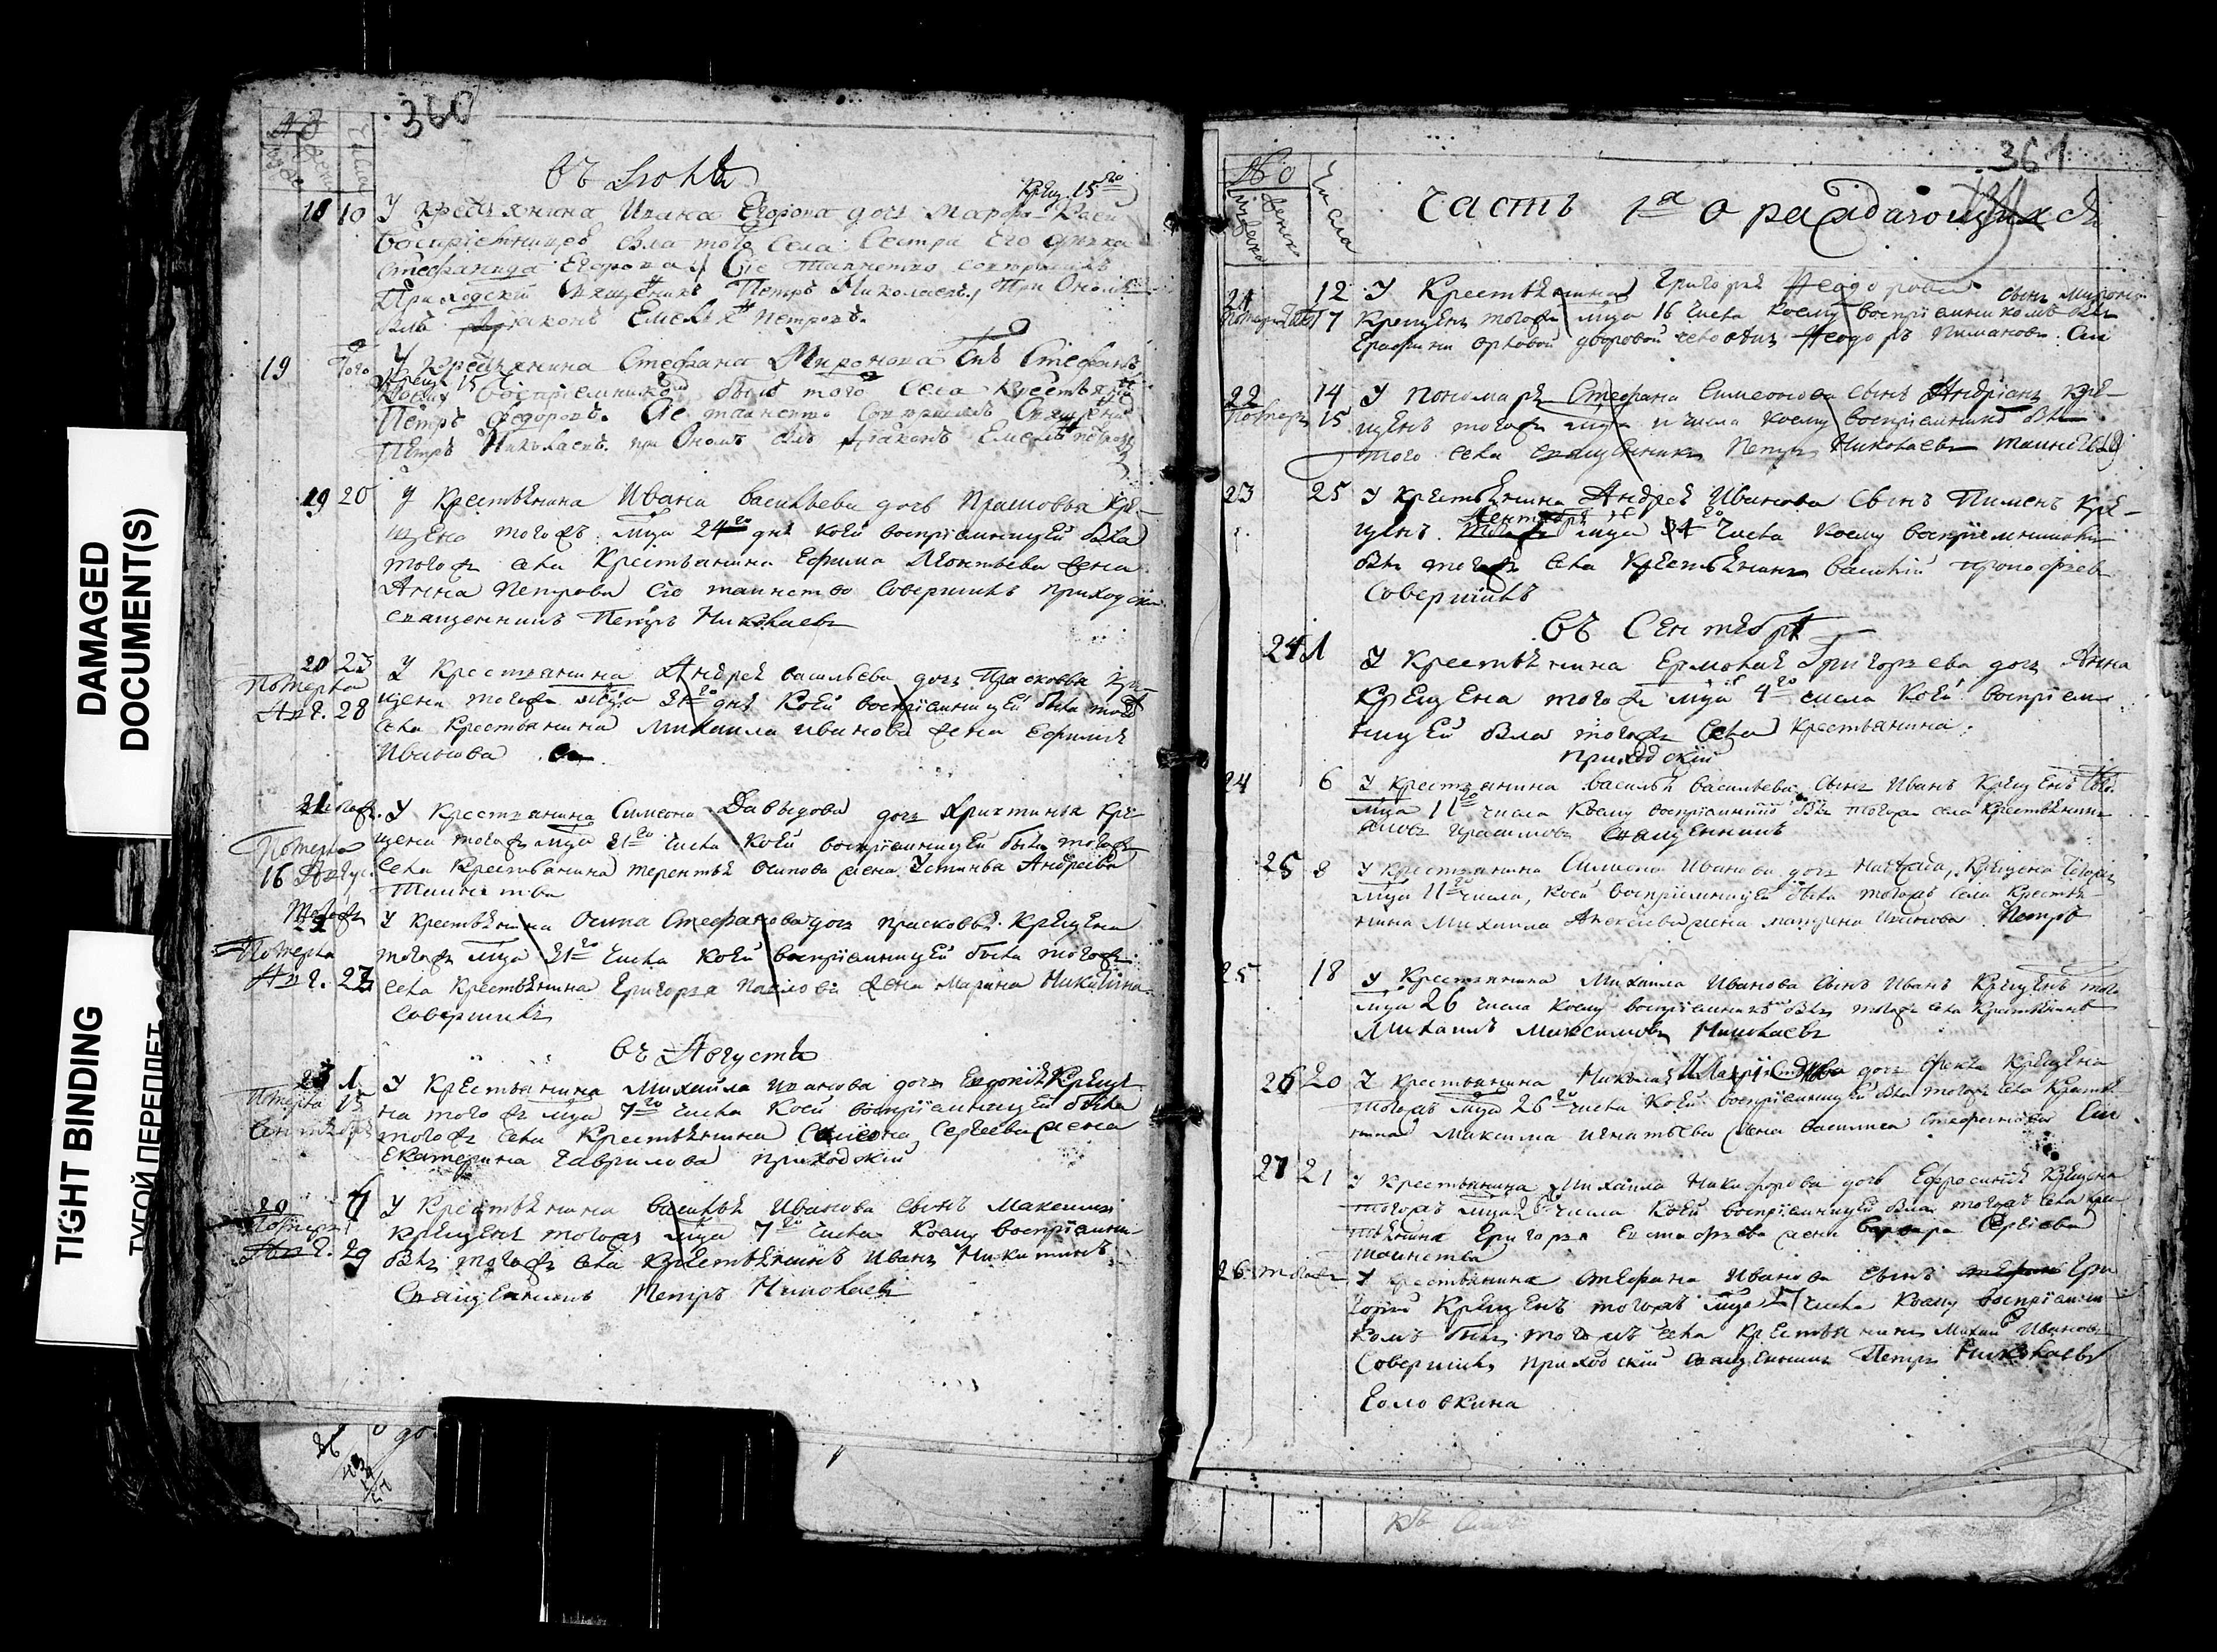 DAMAGED
DOCUMENT(S)
TIGHT BINDING
ТУГОЙ ПЕРЕПЛЕТ
360
въ Іюлѣ
Крещ. 15го
18 10 У крестьянина Ивана Егорова дочь Марѳа коей
воспріемницею была того села сестра его
Стефанида Егорова Сіе таинство совершилъ
Приходскій Священникъ Петръ Николаевъ. При ономъ
былъ Діаконъ Емел. Петровъ.
19 Того У крестьянина Стефана Миронова сынъ Стефанъ
Крещ 15 коему воспріемникомъ былъ того села крестьян
Петръ Федоровъ. Сіе таинство совершилъ Священ
Петръ Николаевъ. при ономъ былъ Діаконъ Емел. Петровъ
19 20 У крестьянина Ивана Васильева дочь Прасковья кре-
щена того ж мца 24го дня коей воспріемницей была
того ж села крестьянина Ефима Леонтьева жена
Анна Петрова сіе таинство совершилъ приходскій
священникъ Петръ Николаевъ
20 23 У крестьянина Андрея Васильева дочь Прасковья кре-
Померла щена того ж мца дня коей воспріемницей была того
Авг. 28 села крестьянина Михаила Иванова жена Ефимія
Иванова
21 того ж У крестьянина Симеона Давыдова дочь Христинья кре
Померла щена того ж мца 21го числа коей воспріемницей была того ж
16 Авгус. села крестьянина Терентья Осипова жена Устинья Андреева
Таинства
Того ж У крестьянина Осипа Стефанова дочь Прасковья крещена
Померла того ж мца 21го числа коей воспріемницей была того ж
Авг. 27 села крестьянина Григорья Павлова жена Марина Никитина
совершилъ
въ Августѣ
23 1 У крестьянина Михайла Иванова дочь Евдокія креще
Померла 15 на того ж мца 7го числа коей воспріемницей была
Сентября того ж села крестьянина Симеона Сергеева жена
Екатерина Гаврилова приходскій
20 4 У крестьянина Василья Иванова сынъ Максимъ
Померъ крещенъ того ж мца 7го числа коему воспріемни
Авг. 29 былъ того ж села крестьянинъ Иванъ Никитинъ
Священникъ Петръ Николаевъ
361
№ Числа
Часть 1я о раждающихся
21 12 У крестьянина Григорья Феодорова сынъ Миронъ
Померъ 17 крещенъ того ж мца 16 числа коему воспріемникомъ былъ
дворовой человекъ Феодоръ Пимановъ
22 14 У пономаря Стефана Симеонова сынъ Андріанъ кре-
Померъ 15 щенъ того ж мца и числа коему воспріемникъ былъ
того села священникъ Петръ Николаевъ таинство
23 25 У крестьянина Андрея Иванова сынъ Пименъ кре-
щенъ Сентября мца 4го числа коему воспріемникомъ
былъ того ж села крестьянинъ Василій Прокофьев
совершилъ
въ Сентябрѣ
24 1 У крестьянина Ермолая Григорьева дочь Анна
крещена того ж мца 4го числа коей воспріем-
ницей была того ж села крестьянина
приходскій
24 6 У крестьянина Василья Васильева сынъ Иванъ крещенъ того
мца 11го числа коему воспріемникомъ былъ того ж села крестьянинъ
Герасимовъ Священникъ
25 8 У крестьянина Симиона Иванова дочь Надежда, крещена того ж
мца 11го числа, коей воспріемницей была того ж села крестья-
нина Михаила Алексеева жена Матрина Иванова Петръ
25 18 У крестьянина Михаила Иванова сынъ Иванъ крещенъ того
мца 26 числа коему воспріемникъ былъ того ж села крестьянинъ
Михаилъ Максимовъ Николаевъ
26 20 У крестьянина Николая дочь Фекла крещена
того ж мца 26го числа коей воспріемницей была того ж села крестья
нина Максима Игнатьева жена Василиса Стефанова
27 21 У крестьянина Михаила Никифорова дочь Ефросинія крещена
того ж мца числа коей воспріемницей была того ж села кре-
стьянина Григорья Евстафьева жена Варвара Сергіева
таинства
26 того ж У крестьянина Стефана Иванова сынъ Гри
горій крещенъ того ж мца 27 числа коему воспріемни-
комъ былъ того ж села крестьянинъ Михаил Ивановъ
Совершилъ приходскій священникъ Петръ Николаевъ
Головкина